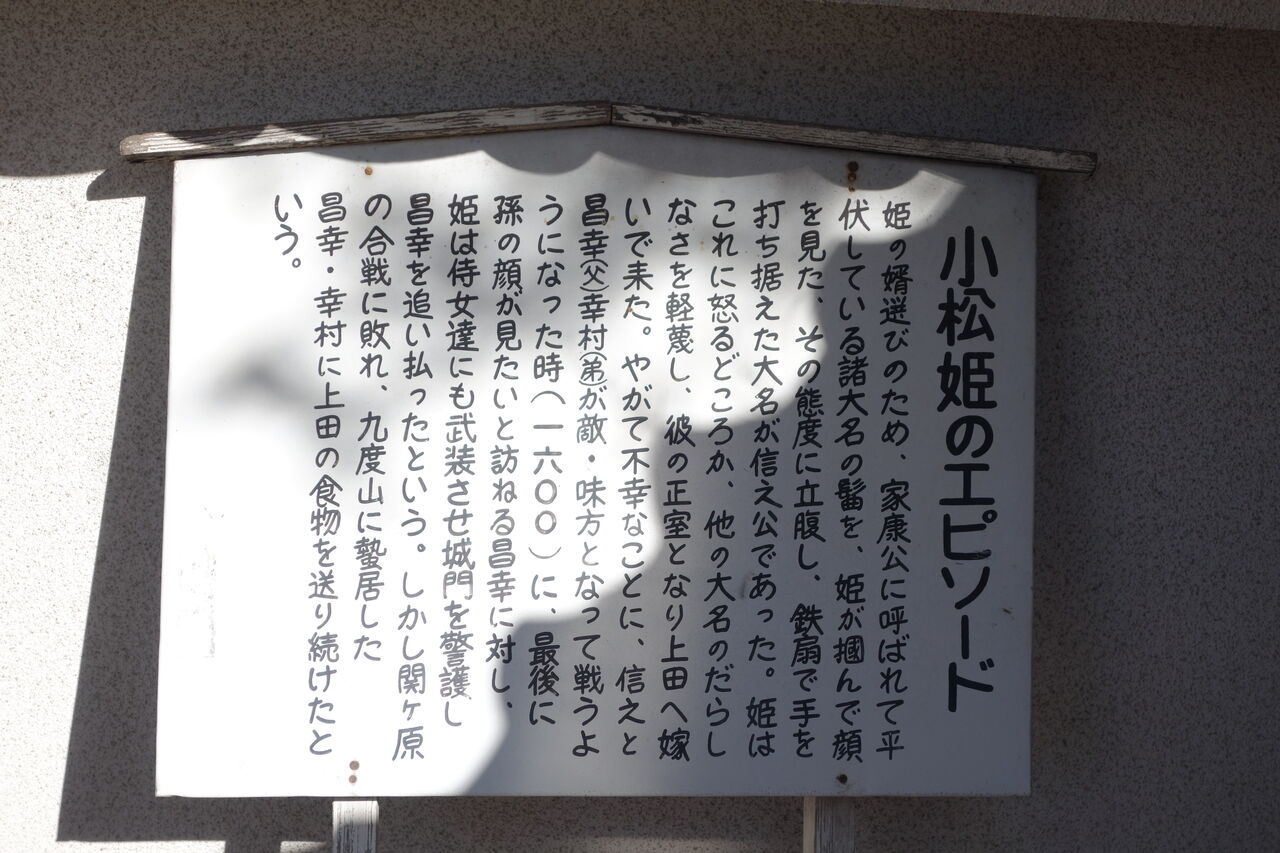 小松姫のエピソード
姫の婿選びのため、家康公に呼ばれて平
伏している諸大名の髷を、姫が摑んで顔
を見た、その態度に立腹し、鉄扇で手を
打ち据えた大名が信え公であった。姫は
これに怒るどころか、他の大名のだらし
なさを軽蔑し、彼の正室となり上田へ嫁
いで来た。やがて不幸なことに、信えと
昌幸(父)幸村(弟)が敵・味方となって戦うよ
うになった時(一六〇〇)に、最後に
孫の顔が見たいと訪ねる昌幸に対し、
姫は侍女達にも武装させ城門を警護し
昌幸を追い払ったという。しかし関ヶ原
の合戦に敗れ、九度山に蟄居した
昌幸・幸村に上田の食物を送り続けたと
いう。